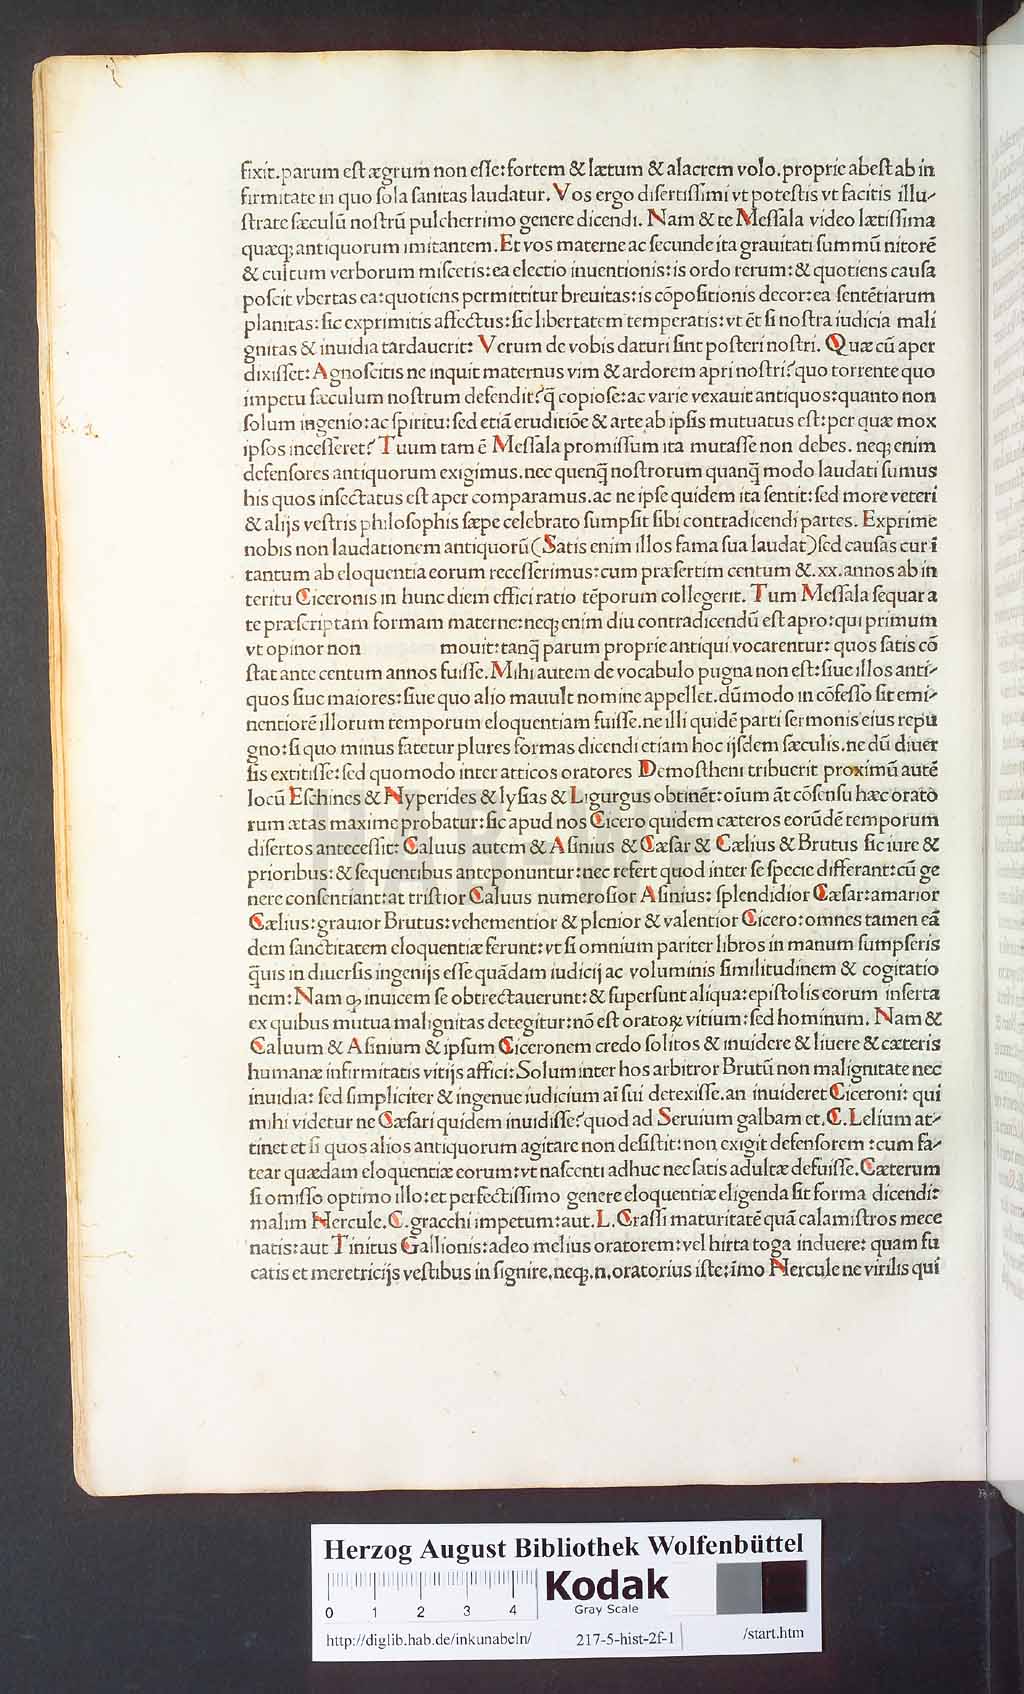 fixit.parum est ægrum non esse:fortem & lætum & alacrem volo.proprie abest ab in
firmitate in quo sola sanitas laudatur. Vos ergo disertissimi vt potestis vt facitis illu-
strate sæculū nostrū pulcherrimo genere dicendi. Nam & te Messala video lætissima
quæq; antiquorum imitantem. Et vos materne ac secunde ita grauitati summū nitorē
& cultum verborum miscetis: ea electio inuentionis: is ordo rerum: & quotiens causa
poscit vbertas ea: quotiens permittitur breuitas: is cōpositionis decor: ea sentētiarum
planitas: sic exprimitis affectus: sic libertatem temperatis: vt ēt si nostra iudicia mali
gnitas & inuidia tardauerit: Verum de vobis daturi sint posteri nostri. Quæ cū aper
dixisset: Agnoscitis ne inquit maternus vim & ardorem apri nostri? quo torrente quo
impetu sæculum nostrum defendit? q̄ copiose: ac varie vexauit antiquos: quanto non
solum ingenio: ac spiritu: sed etiā eruditiōe & arte ab ipsis mutuatus est: per quæ mox
ipsos incesseret? Tuum tam ē Messala promissum ita mutasse non debes. neq; enim
defensores antiquorum exigimus. nec quenq̄ nostrorum quanq̄ modo laudati sumus
his quos insectatus est aper comparamus. ac ne ipse quidem ita sentit: sed more veteri
& alijs vestris philosophis sæpe celebrato sumpsit sibi contradicendi partes. Exprime
nobis non laudationem antiquorū (Satis enim illos fama sua laudat) sed causas cur ī
tantum ab eloquentia eorum recesserimus: cum præsertim centum &.xx.annos ab in
teritu Ciceronis in hunc diem effici ratio tēporum collegerit. Tum Messala sequar a
te præscriptam formam materne: neq; enim diu contradicendū est apro: qui primum
vt opinor non mouit: tanq̄ parum proprie antiqui vocarentur: quos satis cō
stat ante centum annos fuisse. Mihi autem de vocabulo pugna non est: siue illos anti-
quos siue maiores: siue quo alio mauult nomine appellet. dū modo in cōfesso sit emi-
nentiorē illorum temporum eloquentiam fuisse. ne illi quidē parti sermonis eius repu
gno: si quo minus fatetur plures formas dicendi etiam hoc ijsdem sæculis. ne dū diuer
sis extitisse: sed quomodo inter atticos oratores Demostheni tribuerit proximū autē
locū Eschines & Nyperides & lysias & Ligurgus obtinēt: oīum āt cōsensu hæc orato
rum ætas maxime probatur: sic apud nos Cicero quidem cæteros eorūdē temporum
disertos antecessit: Caluus autem & Asinius & Cæsar & Cælius & Brutus sic iure &
prioribus: & sequentibus anteponuntur: nec refert quod inter se specie differant: cū ge
nere consentiant: at tristior Caluus numerosior Asinius: splendidior Cæsar: amarior
Cælius: grauior Brutus: vehementior & plenior & valentior Cicero: omnes tamen eā
dem sanctitatem eloquentiæ ferunt: vt si omnium pariter libros in manum sumpseris
q̄uis in diuersis ingenijs esse quādam iudicij ac voluminis similitudinem & cogitatio
nem: Nam q; inuicem se obtrectauerunt: & supersunt aliqua: epistolis eorum inserta
ex quibus mutua malignitas detegitur: nō est oratoꝝ vitium: sed hominum. Nam &
Caluum & Asinium & ipsum Ciceronem credo solitos & inuidere & liuere & cæteris
humanæ infirmitatis vitijs affici: Solum inter hos arbitror Brutū non malignitate nec
inuidia: sed simpliciter & ingenue iudicium aī sui detexisse. an inuideret Ciceroni: qui
mihi videtur ne Cæsari quidem inuidisse? quod ad Seruium galbam et.C.Lelium at-
tinet et si quos alios antiquorum agitare non desistit: non exigit defensorem: cum fa-
tear quædam eloquentiæ eorum: vt nascenti adhuc nec satis adultæ defuisse. Cæterum
si omisso optimo illo: et perfectissimo genere eloquentiæ eligenda sit forma dicendi:
malim Nercule.C.gracchi impetum: aut.L.Crassi maturitatē quā calamistros mece
natis: aut Tinitus Gallionis: adeo melius oratorem: vel hirta toga induere: quam fu
catis et meretricijs vestibus in signire, neq;.n.oratorius iste: īmo Nercule ne virilis qui
HAB-WF
Herzog August Bibliothek Wolfenbüttel
0 1 2 3 4
Kodak
Gray Scale
http://diglib.hab.de/inkunabeln/ 217-5-hist-2f-1 /start.htm